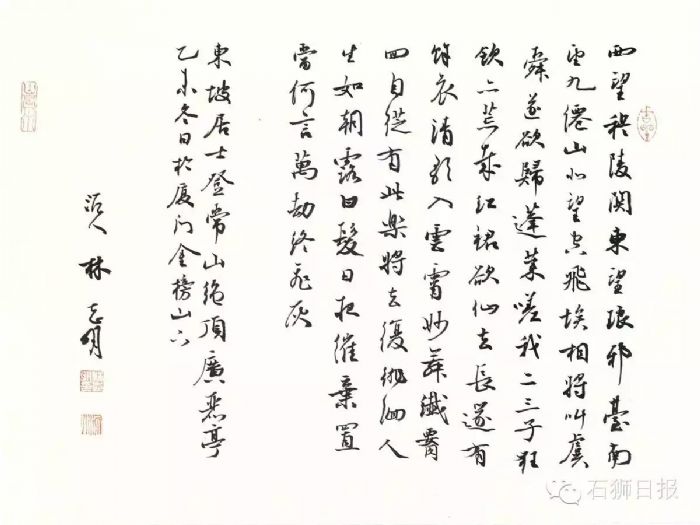 西望穆陵関東望琅邪臺南
望九僊山北望空飛埃相將叫虞
舜遂欲歸蓬萊嗟我二三子狂
飲亦荒哉紅裙欲仙去長篴有
餘哀清歌入雲霄妙舞纖腰
回自從有此樂將去復徘徊人
生如朝露白髮日夜催棄置
當何言萬劫終飛灰
東坡居士登常山絶頂廣麗亭
乙未冬日於厦门金榜山下
人 林志明
石狮日报